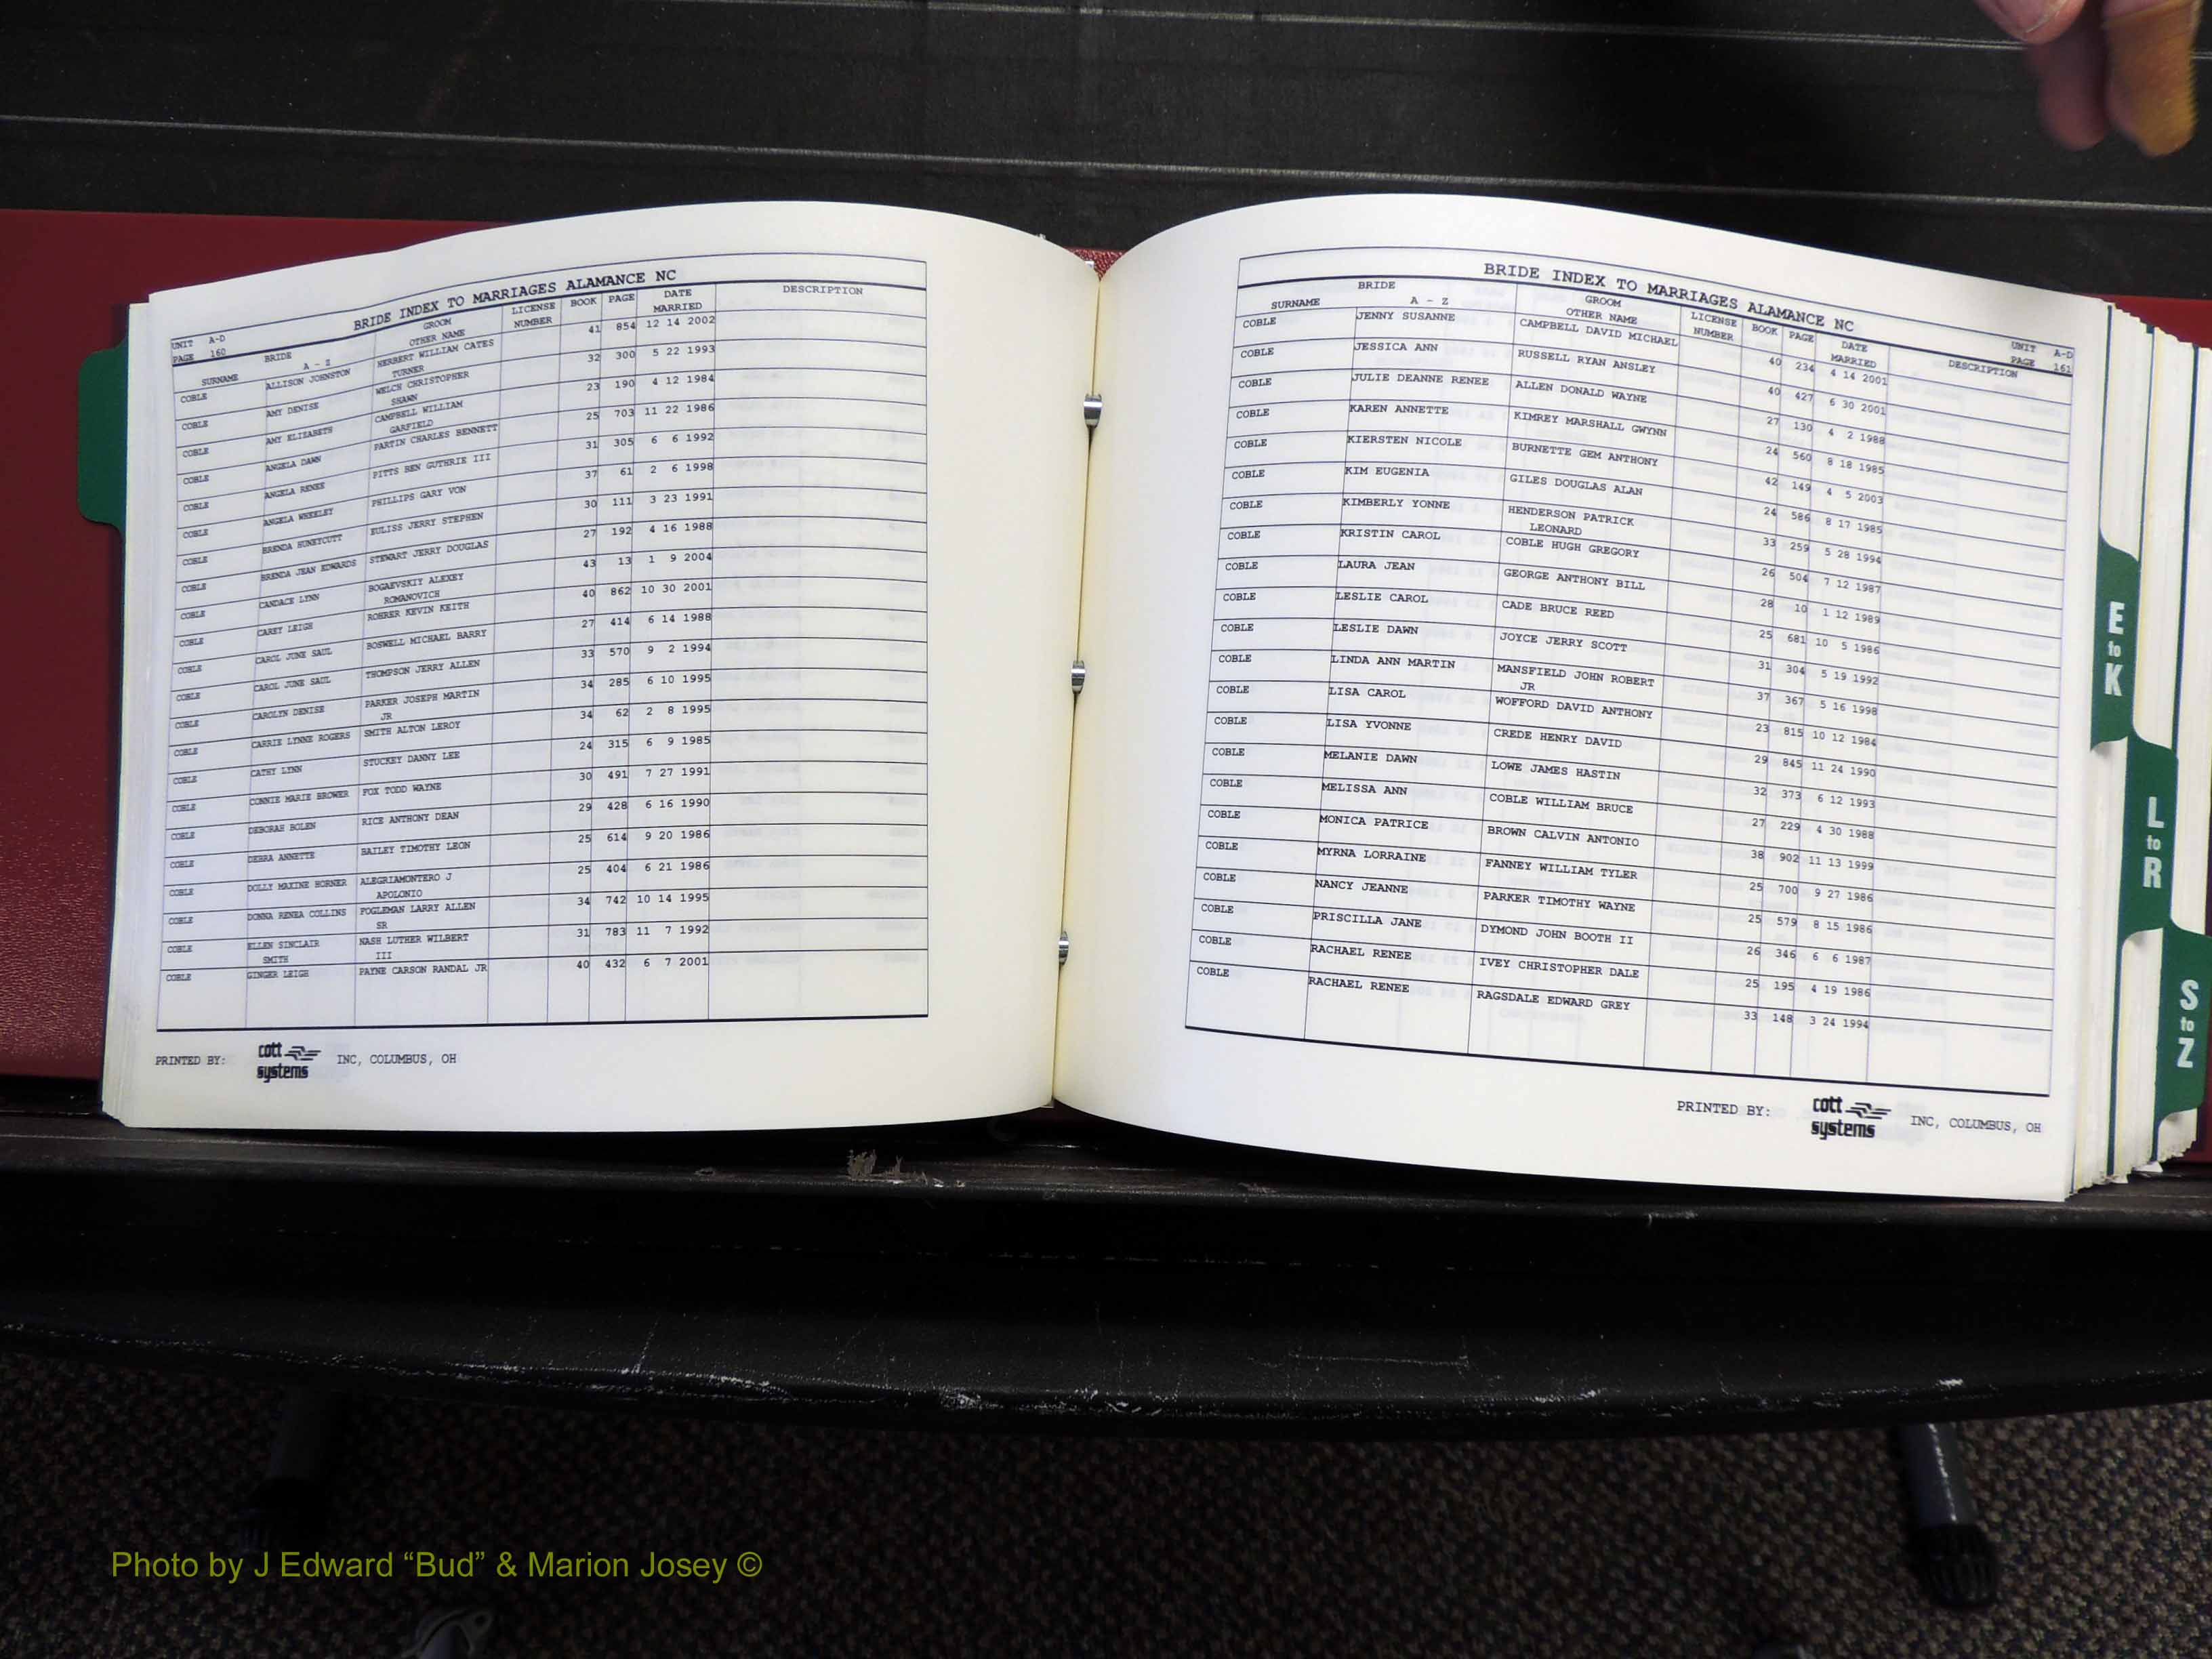 BRIDE INDEX TO MARRIAGES ALAMANCE NC
UNIT A-D
PAGE 160
BRIDE GROOM LICENSE BOOK PAGE DATE DESCRIPTION
SURNAME A - Z OTHER NAME NUMBER MARRIED
COBLE ALLISON JOHNSTON HERBERT WILLIAM CATES 41 854 12 14 2002
TURNER
COBLE AMY DENISE WELCH CHRISTOPHER 32 300 5 22 1993
SHAWN
COBLE AMY ELIZABETH CAMPBELL WILLIAM 23 190 4 12 1984
GARFIELD
COBLE ANGELA DAWN PARTIN CHARLES BENNETT 25 703 11 22 1986
COBLE ANGELA RENEE PITTS BEN GUTHRIE III 31 305 6 6 1992
COBLE ANGELA WHEELEY PHILLIPS GARY VON 37 61 2 6 1998
COBLE BRENDA HUNEYCUTT EULISS JERRY STEPHEN 30 111 3 23 1991
COBLE BRENDA JEAN EDWARDS STEWART JERRY DOUGLAS 27 192 4 16 1988
COBLE CANDACE LYNN BOGAEVSKIY ALEXEY 43 13 1 9 2004
ROMANOVICH
COBLE CAREY LEIGH ROHRER KEVIN KEITH 40 862 10 30 2001
COBLE CAROL JUNE SAUL BOSWELL MICHAEL BARRY 27 414 6 14 1988
COBLE CAROL JUNE SAUL THOMPSON JERRY ALLEN 33 570 9 2 1994
COBLE CAROLYN DENISE PARKER JOSEPH MARTIN 34 285 6 10 1995
JR
COBLE CARRIE LYNNE ROGERS SMITH ALTON LEROY 34 62 2 8 1995
COBLE CATHY LYNN STUCKEY DANNY LEE 24 315 6 9 1985
COBLE CONNIE MARIE BROWER FOX TODD WAYNE 30 491 7 27 1991
COBLE DEBORAH BOLEN RICE ANTHONY DEAN 29 428 6 16 1990
COBLE DEBRA ANNETTE BAILEY TIMOTHY LEON 25 614 9 20 1986
COBLE DOLLY MAXINE HORNER ALEGRIAMONTERO J 25 404 6 21 1986
APOLONIO
COBLE DONNA RENEA COLLINS FOGLEMAN LARRY ALLEN 34 742 10 14 1995
SR
COBLE ELLEN SINCLAIR NASH LUTHER WILBERT 31 783 11 7 1992
SMITH III
COBLE GINGER LEIGH PAYNE CARSON RANDAL JR 40 432 6 7 2001
PRINTED BY: cott systems INC, COLUMBUS, OH
BRIDE INDEX TO MARRIAGES ALAMANCE NC
UNIT A-D
PAGE 161
BRIDE GROOM LICENSE BOOK PAGE DATE DESCRIPTION
SURNAME A - Z OTHER NAME NUMBER MARRIED
COBLE JENNY SUSANNE CAMPBELL DAVID MICHAEL 40 234 4 14 2001
COBLE JESSICA ANN RUSSELL RYAN ANSLEY 40 427 6 30 2001
COBLE JULIE DEANNE RENEE ALLEN DONALD WAYNE 27 130 4 2 1988
COBLE KAREN ANNETTE KIMREY MARSHALL GWYNN 24 560 8 18 1985
COBLE KIERSTEN NICOLE BURNETTE GEM ANTHONY 42 149 4 5 2003
COBLE KIM EUGENIA GILES DOUGLAS ALAN 24 586 8 17 1985
COBLE KIMBERLY YONNE HENDERSON PATRICK 33 259 5 28 1994
LEONARD
COBLE KRISTIN CAROL COBLE HUGH GREGORY 26 504 7 12 1987
COBLE LAURA JEAN GEORGE ANTHONY BILL 28 10 1 12 1989
COBLE LESLIE CAROL CADE BRUCE REED 25 681 10 5 1986
COBLE LESLIE DAWN JOYCE JERRY SCOTT 31 304 5 19 1992
COBLE LINDA ANN MARTIN MANSFIELD JOHN ROBERT 37 367 5 16 1998
JR
COBLE LISA CAROL WOFFORD DAVID ANTHONY 23 815 10 12 1984
COBLE LISA YVONNE CREDE HENRY DAVID 29 845 11 24 1990
COBLE MELANIE DAWN LOWE JAMES HASTIN 32 373 6 12 1993
COBLE MELISSA ANN COBLE WILLIAM BRUCE 27 229 4 30 1988
COBLE MONICA PATRICE BROWN CALVIN ANTONIO 38 902 11 13 1999
COBLE MYRNA LORRAINE FANNEY WILLIAM TYLER 25 700 9 27 1986
COBLE NANCY JEANNE PARKER TIMOTHY WAYNE 25 579 8 15 1986
COBLE PRISCILLA JANE DYMOND JOHN BOOTH II 26 346 6 6 1987
COBLE RACHAEL RENEE IVEY CHRISTOPHER DALE 25 195 4 19 1986
COBLE RACHAEL RENEE RAGSDALE EDWARD GREY 33 148 3 24 1994
PRINTED BY: cott systems INC, COLUMBUS, OH
E to K
L to R
S to Z
Photo by J Edward “Bud” & Marion Josey ©